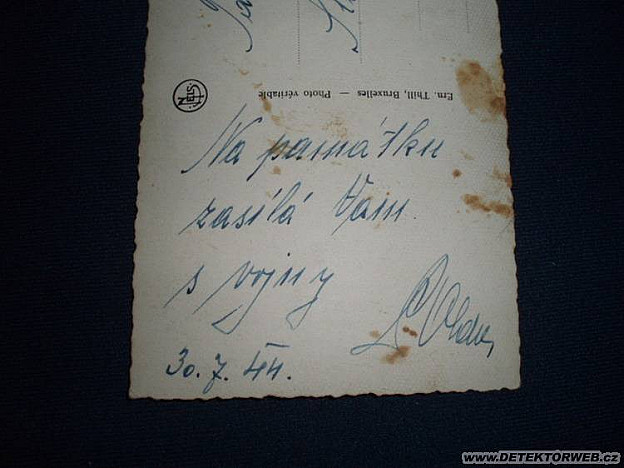 Ern. Thill, Bruxelles — Photo véritable
Na památku
zasílá Vám
s vojny
30. 7. 44.
WWW.DETEKTORWEB.CZ